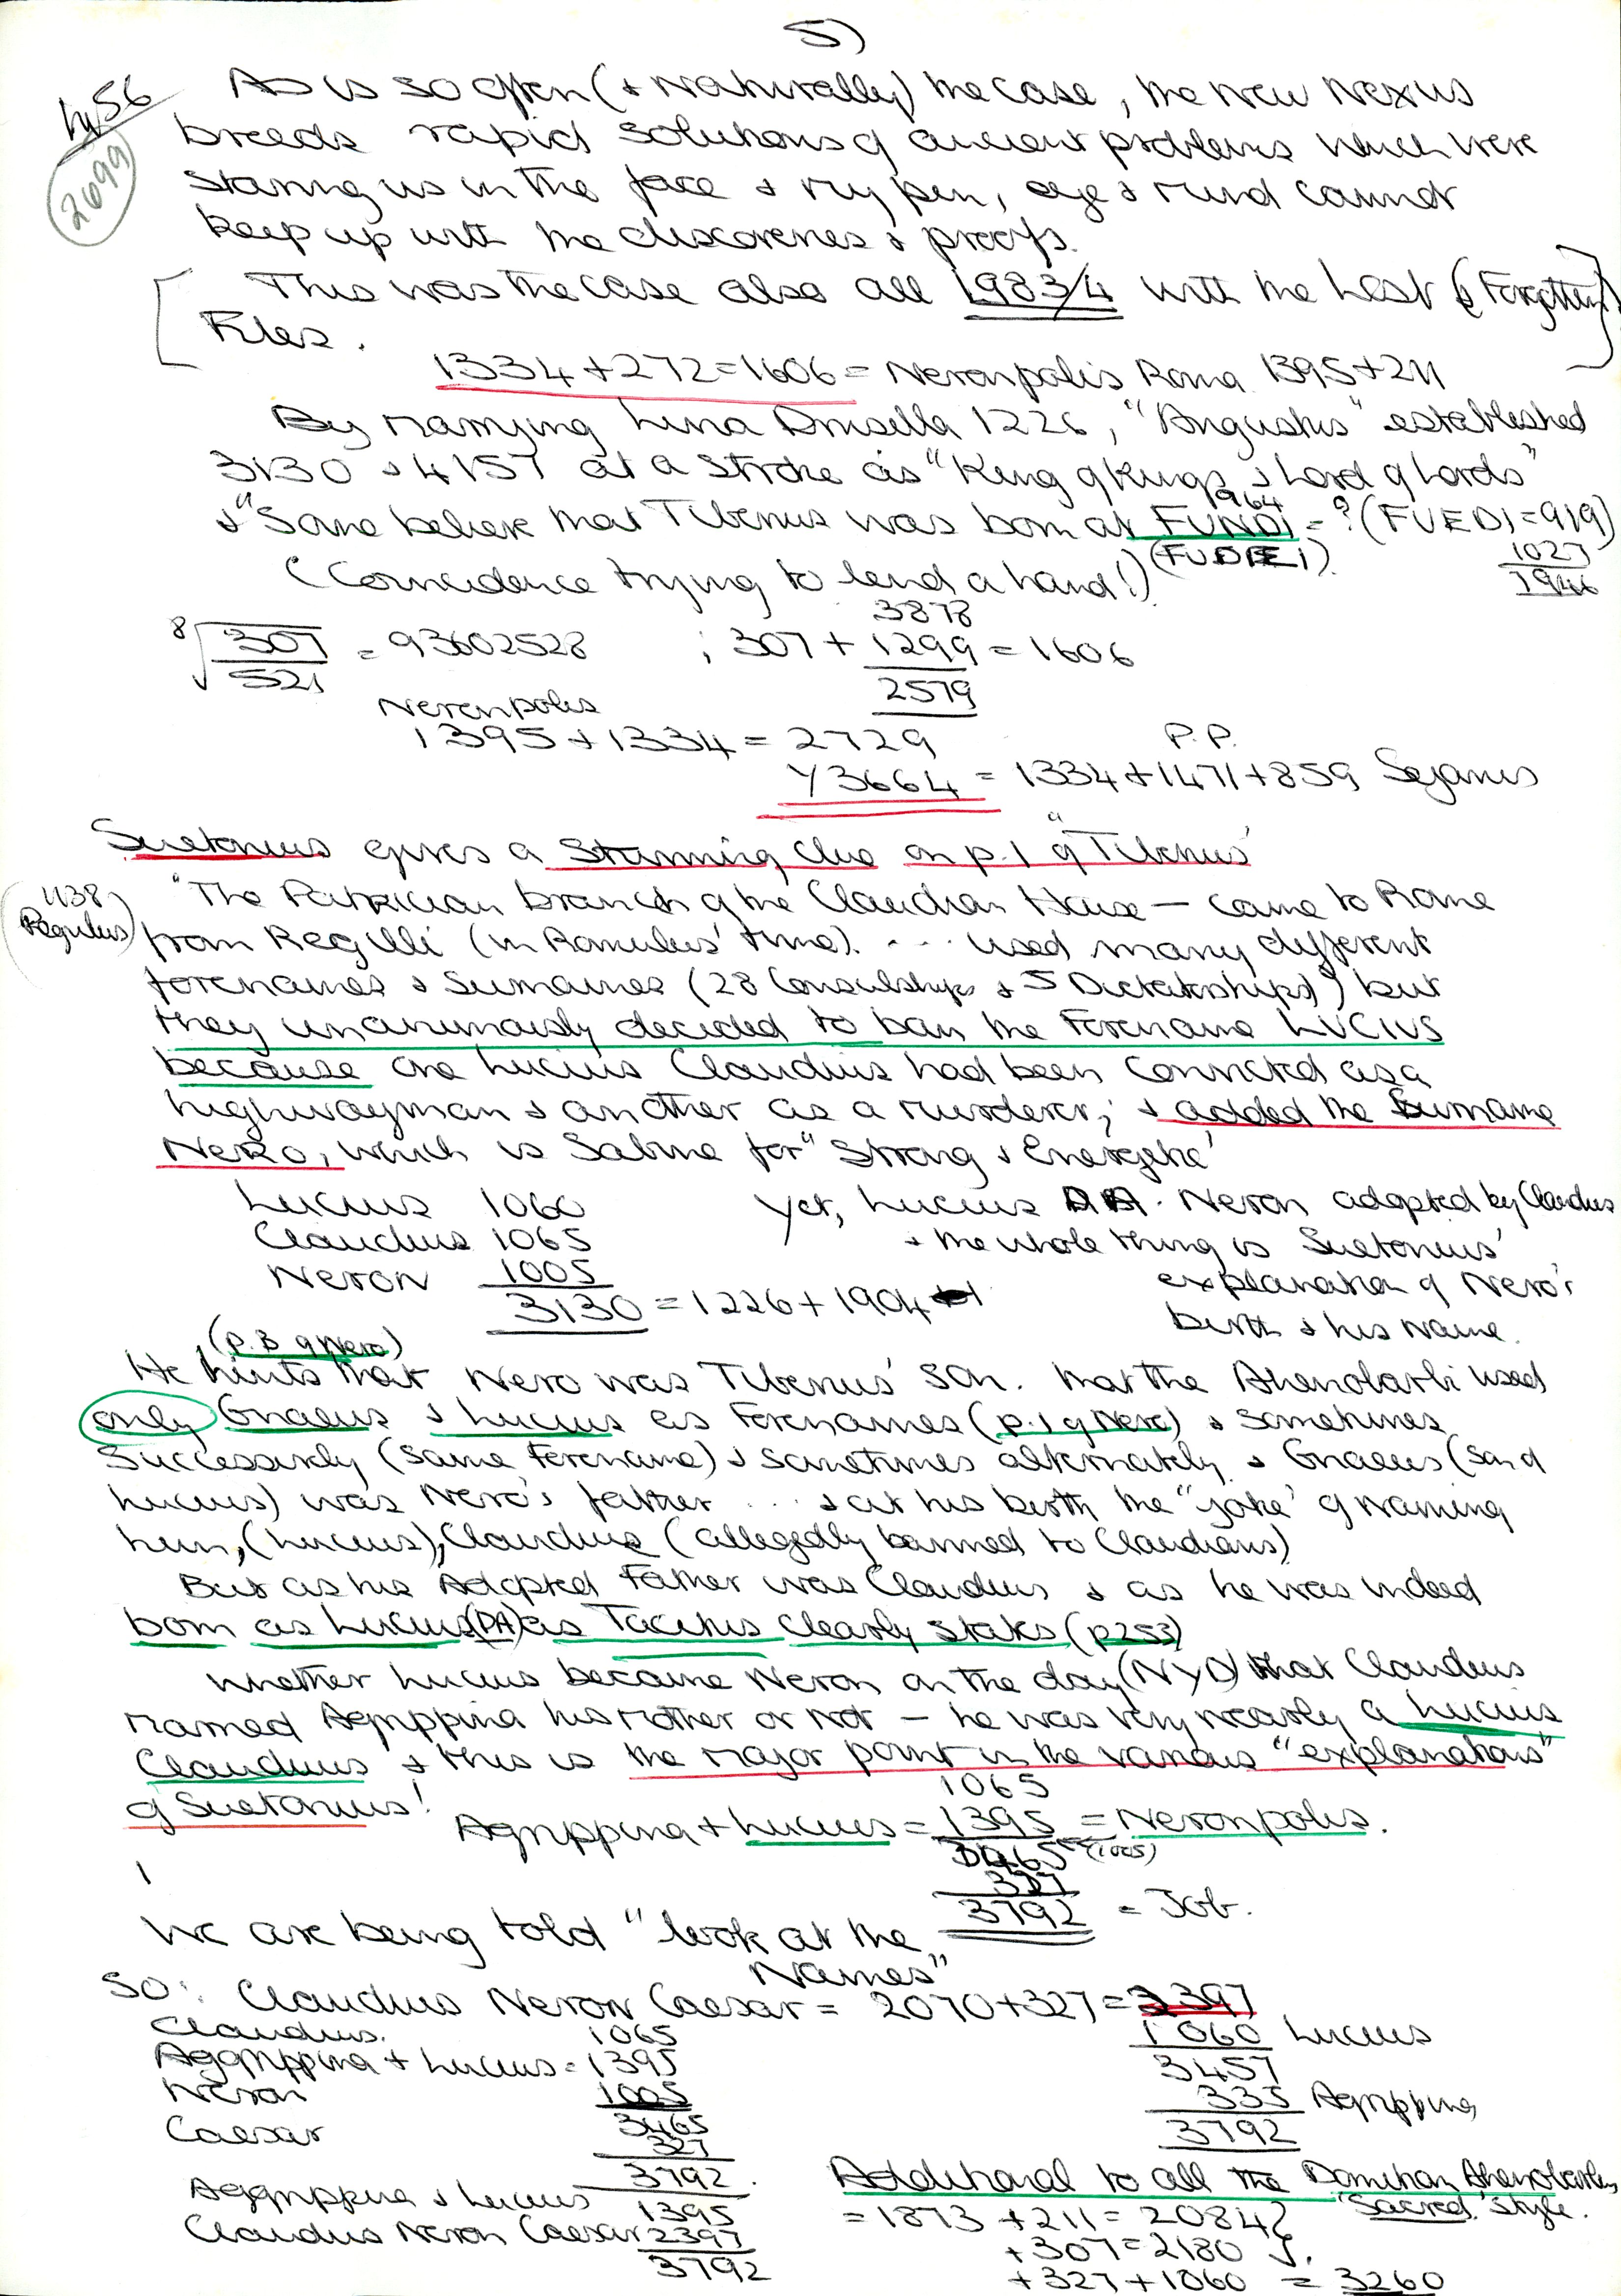 5)
hy56
2699
As is so often (& Naturally) the case, the new Nexus
breeds rapid solutions of ancient problems which were
staring us in the face & my pen, eye & mind cannot
keep up with the discoveries & proofs.
[ This was the case also all 1983/4 with the Lost (& Forgotten)
Files. ]
1334 + 272 = 1606 = Neronpolis Roma 1395 + 211
By marrying Livia Drusilla 1226, "Augustus" established
3130 & 4157 at a stroke as "King of Kings & Lord of Lords"
964
& "Some believe that Tiberius was born at FUNDI = ? (FUEDI = 919)
(Coincidence trying to lend a hand!)
1027
1946
8√307/521 = 93602528 ; 307 + 1299 = 1606
3878
2579
Neronpolis
1395 + 1334 = 2729
P.P.
Y3664 = 1334 + 1471 + 859 Sejanus
Suetonius gives a Stunning Clue on p.1 of "Tiberius"
1138
Regulus
"The Patrician branch of the Claudian House — came to Rome
from Regilli (in Romulus' time). ... used many different
forenames & Surnames (28 Consulships & 5 Dictatorships) but
they unanimously decided to ban the Forename LUCIUS
because one Lucius Claudius had been convicted as a
highwayman & another as a murderer; & added the Surname
Nero, which is Sabine for "Strong & Energetic"
Lucius 1060
Claudius 1065
Neron 1005
3130 = 1226 + 1904
Yet, Lucius DA. Neron adopted by Claudius
& the whole thing is Suetonius'
explanation of Nero's
birth & his name.
(p.3 of Nero)
He hints that Nero was Tiberius' son. that the Ahenobarbi used
only Gnaeus & Lucius as Forenames (p.1 of Nero) & sometimes
Successively (same Forename) & sometimes alternately & Gnaeus (son of
Lucius) was Nero's father ... & at his birth the "joke" of naming
him, (Lucius), Claudius (allegedly banned to Claudians)
But as his Adopted Father was Claudius & as he was indeed
born as Lucius (DA) as Tacitus clearly states (p253)
Whether Lucius became Neron on the day (NYD) that Claudius
married Agrippina his mother or not — he was very nearly a Lucius
Claudius & this is the major point in the various "explanations"
of Suetonius!
1065
Agrippina + Lucius = 1395 = Neronpolis.
3465 (1005)
327
3792 = Job.
We are being told "look at the
Names"
So: Claudius Neron Caesar = 2070 + 327 = 2397
1060 Lucius
3457
335 Agrippina
3792
Claudius. 1065
Agrippina + Lucius = 1395
Neron 1005
3465
Caesar 327
3792.
Agrippina & Lucius 1395
Claudius Neron Caesar 2397
3792
Additional to all the Domitian Ahenobarbus
"Sacred" Style.
= 1873 + 211 = 2084
+ 307 = 2180
+ 327 + 1060 = 3260